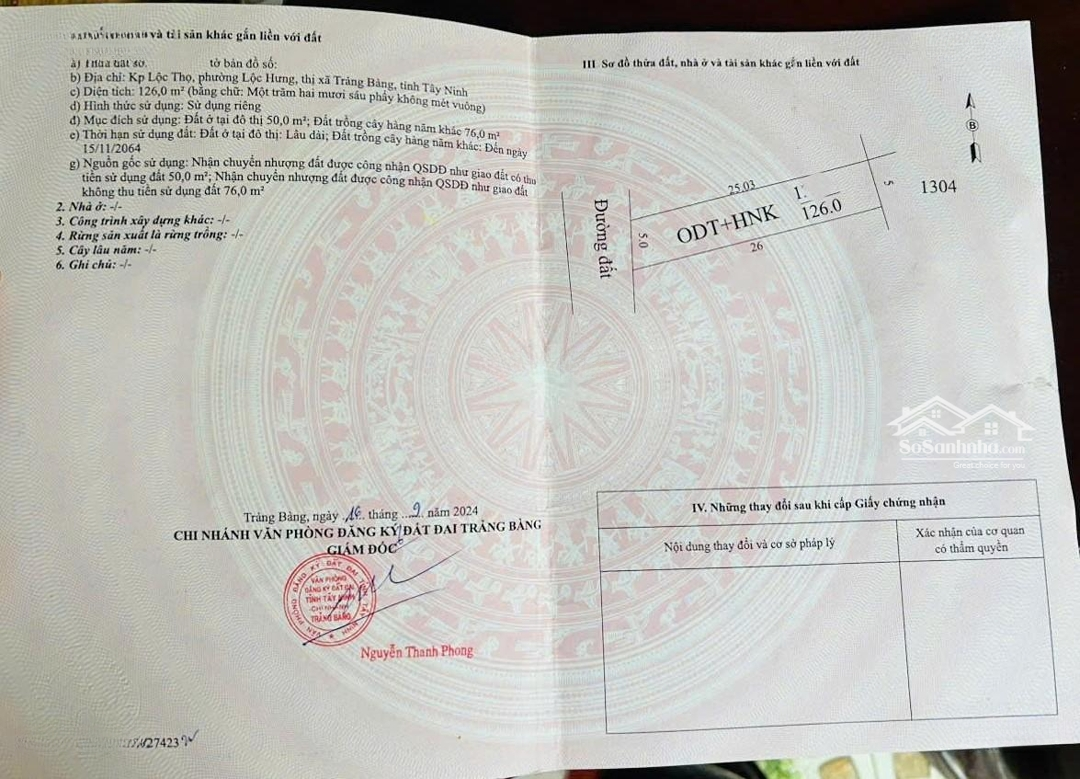 và tài sản khác gắn liền với đất
a) Thửa đất số: tờ bản đồ số:
b) Địa chỉ: Kp Lộc Thọ, phường Lộc Hưng, thị xã Trảng Bàng, tỉnh Tây Ninh
c) Diện tích: 126,0 m² (bằng chữ: Một trăm hai mươi sáu phẩy không mét vuông)
d) Hình thức sử dụng: Sử dụng riêng
đ) Mục đích sử dụng: Đất ở tại đô thị 50,0 m²; Đất trồng cây hàng năm khác 76,0 m²
e) Thời hạn sử dụng đất: Đất ở tại đô thị: Lâu dài; Đất trồng cây hàng năm khác: Đến ngày
15/11/2064
g) Nguồn gốc sử dụng: Nhận chuyển nhượng đất được công nhận QSDĐ như giao đất có thu
tiền sử dụng đất 50,0 m²; Nhận chuyển nhượng đất được công nhận QSDĐ như giao đất
không thu tiền sử dụng đất 76,0 m²
2. Nhà ở: -/-
3. Công trình xây dựng khác: -/-
4. Rừng sản xuất là rừng trồng: -/-
5. Cây lâu năm: -/-
6. Ghi chú: -/-
Trảng Bàng, ngày 16 tháng 9 năm 2024
CHI NHÁNH VĂN PHÒNG ĐĂNG KÝ ĐẤT ĐAI TRẢNG BÀNG
GIÁM ĐỐC
VĂN PHÒNG
ĐĂNG KÝ ĐẤT ĐAI
TỈNH TÂY NINH
CHI NHÁNH
TRẢNG BÀNG
Nguyễn Thanh Phong
27423
III. Sơ đồ thửa đất, nhà ở và tài sản khác gắn liền với đất
B
Đường đất
25.03
5.0
ODT+HNK
126.0
26
5
1304
SoSanhnha.com
Great choice for you
IV. Những thay đổi sau khi cấp Giấy chứng nhận
Nội dung thay đổi và cơ sở pháp lý
Xác nhận của cơ quan
có thẩm quyền